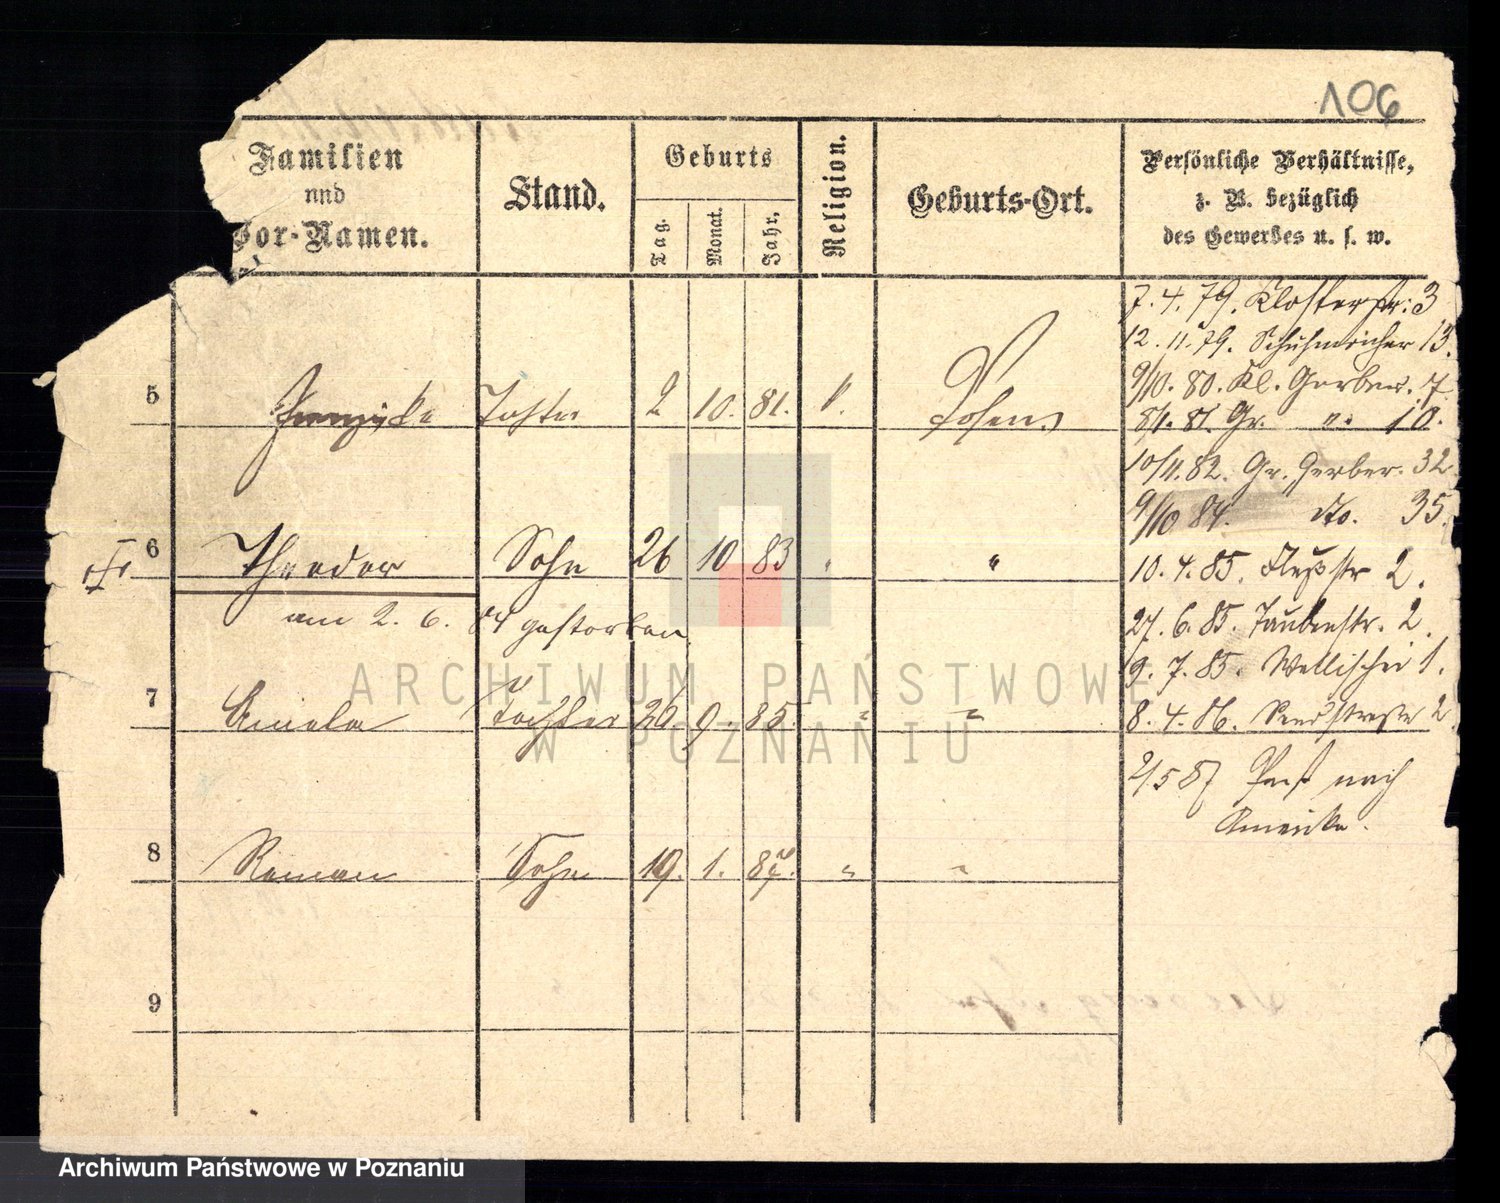 106
Familien
und
Vor-Namen.
Stand.
Geburts
Tag.
Monat.
Jahr.
Religion.
Geburts-Ort.
Persönliche Verhältnisse,
z. B. bezüglich
des Gewerbes u. s. w.
5 Tochter 2 10. 81. Posen
6 Theodor Sohn 26 10 83 " "
am 2. 6. 84 gestorben
7 Tochter 26. 9. 85. " "
8 Roman Sohn 19. 1. 87. " "
9
7. 4. 79. Klosterstr: 3
12. 11. 79. Schuhmacher 13.
9/10. 80. Kl. Gerber. 7
8/1. 81. Gr. " 10.
10/11. 82. Gr. Gerber. 32
9/10 84. do. 35.
10. 4. 85. Flußstr 2.
27. 6. 85. Taubenstr. 2.
9. 7. 85. Wallischei 1.
8. 4. 86. 2
2/5 87 Paß nach
Amerika.
ARCHIWUM PAŃSTWOWE
W POZNANIU
Archiwum Państwowe w Poznaniu